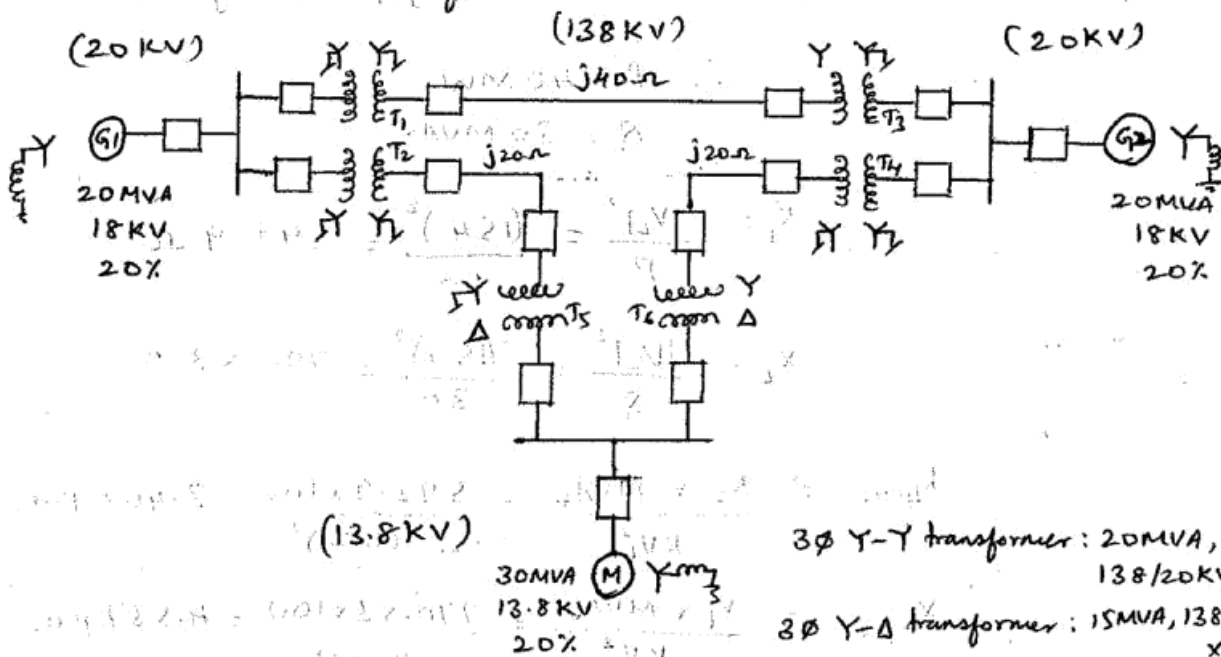 (20 KV)
(138KV)
(20KV)
j40Ω
T1
T3
G1
T2
j20Ω
j20Ω
T4
G2
20MVA
18KV
20%
20MVA
18KV
20%
Y
Y
Y
Y
Y
Y
Y
Y
Y
Y
Y
T5
T6
Y
Δ
Δ
(13.8KV)
30MVA
13.8KV
20%
M
Y
3Ø Y-Y transformer : 20MVA,
138/20KV
3Ø Y-Δ transformer : 15MVA, 138
X